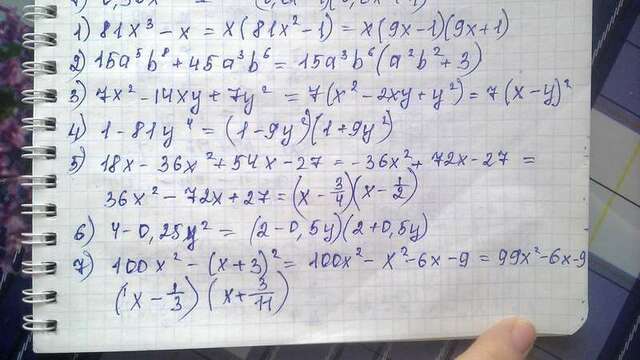 1) 81x³ - x = x(81x² - 1) = x(9x - 1)(9x + 1)
2) 15a⁵b⁸ + 45a³b⁶ = 15a³b⁶(a²b² + 3)
3) 7x² - 14xy + 7y² = 7(x² - 2xy + y²) = 7(x - y)²
4) 1 - 81y⁴ = (1 - 9y²)(1 + 9y²)
5) 18x - 36x² + 54x - 27 = -36x² + 72x - 27 =
36x² - 72x + 27 = (x - 3/4)(x - 1/2)
6) 4 - 0,25y² = (2 - 0,5y)(2 + 0,5y)
7) 100x² - (x + 3)² = 100x² - x² - 6x - 9 = 99x² - 6x - 9
(x - 1/3)(x + 3/11)